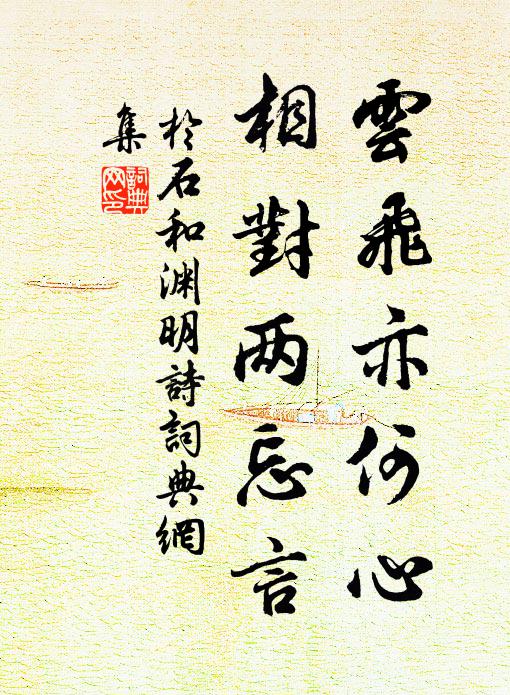 雲飛亦何心
相對两忘言
於石和淵明詩詞典網
集
詞典
网印